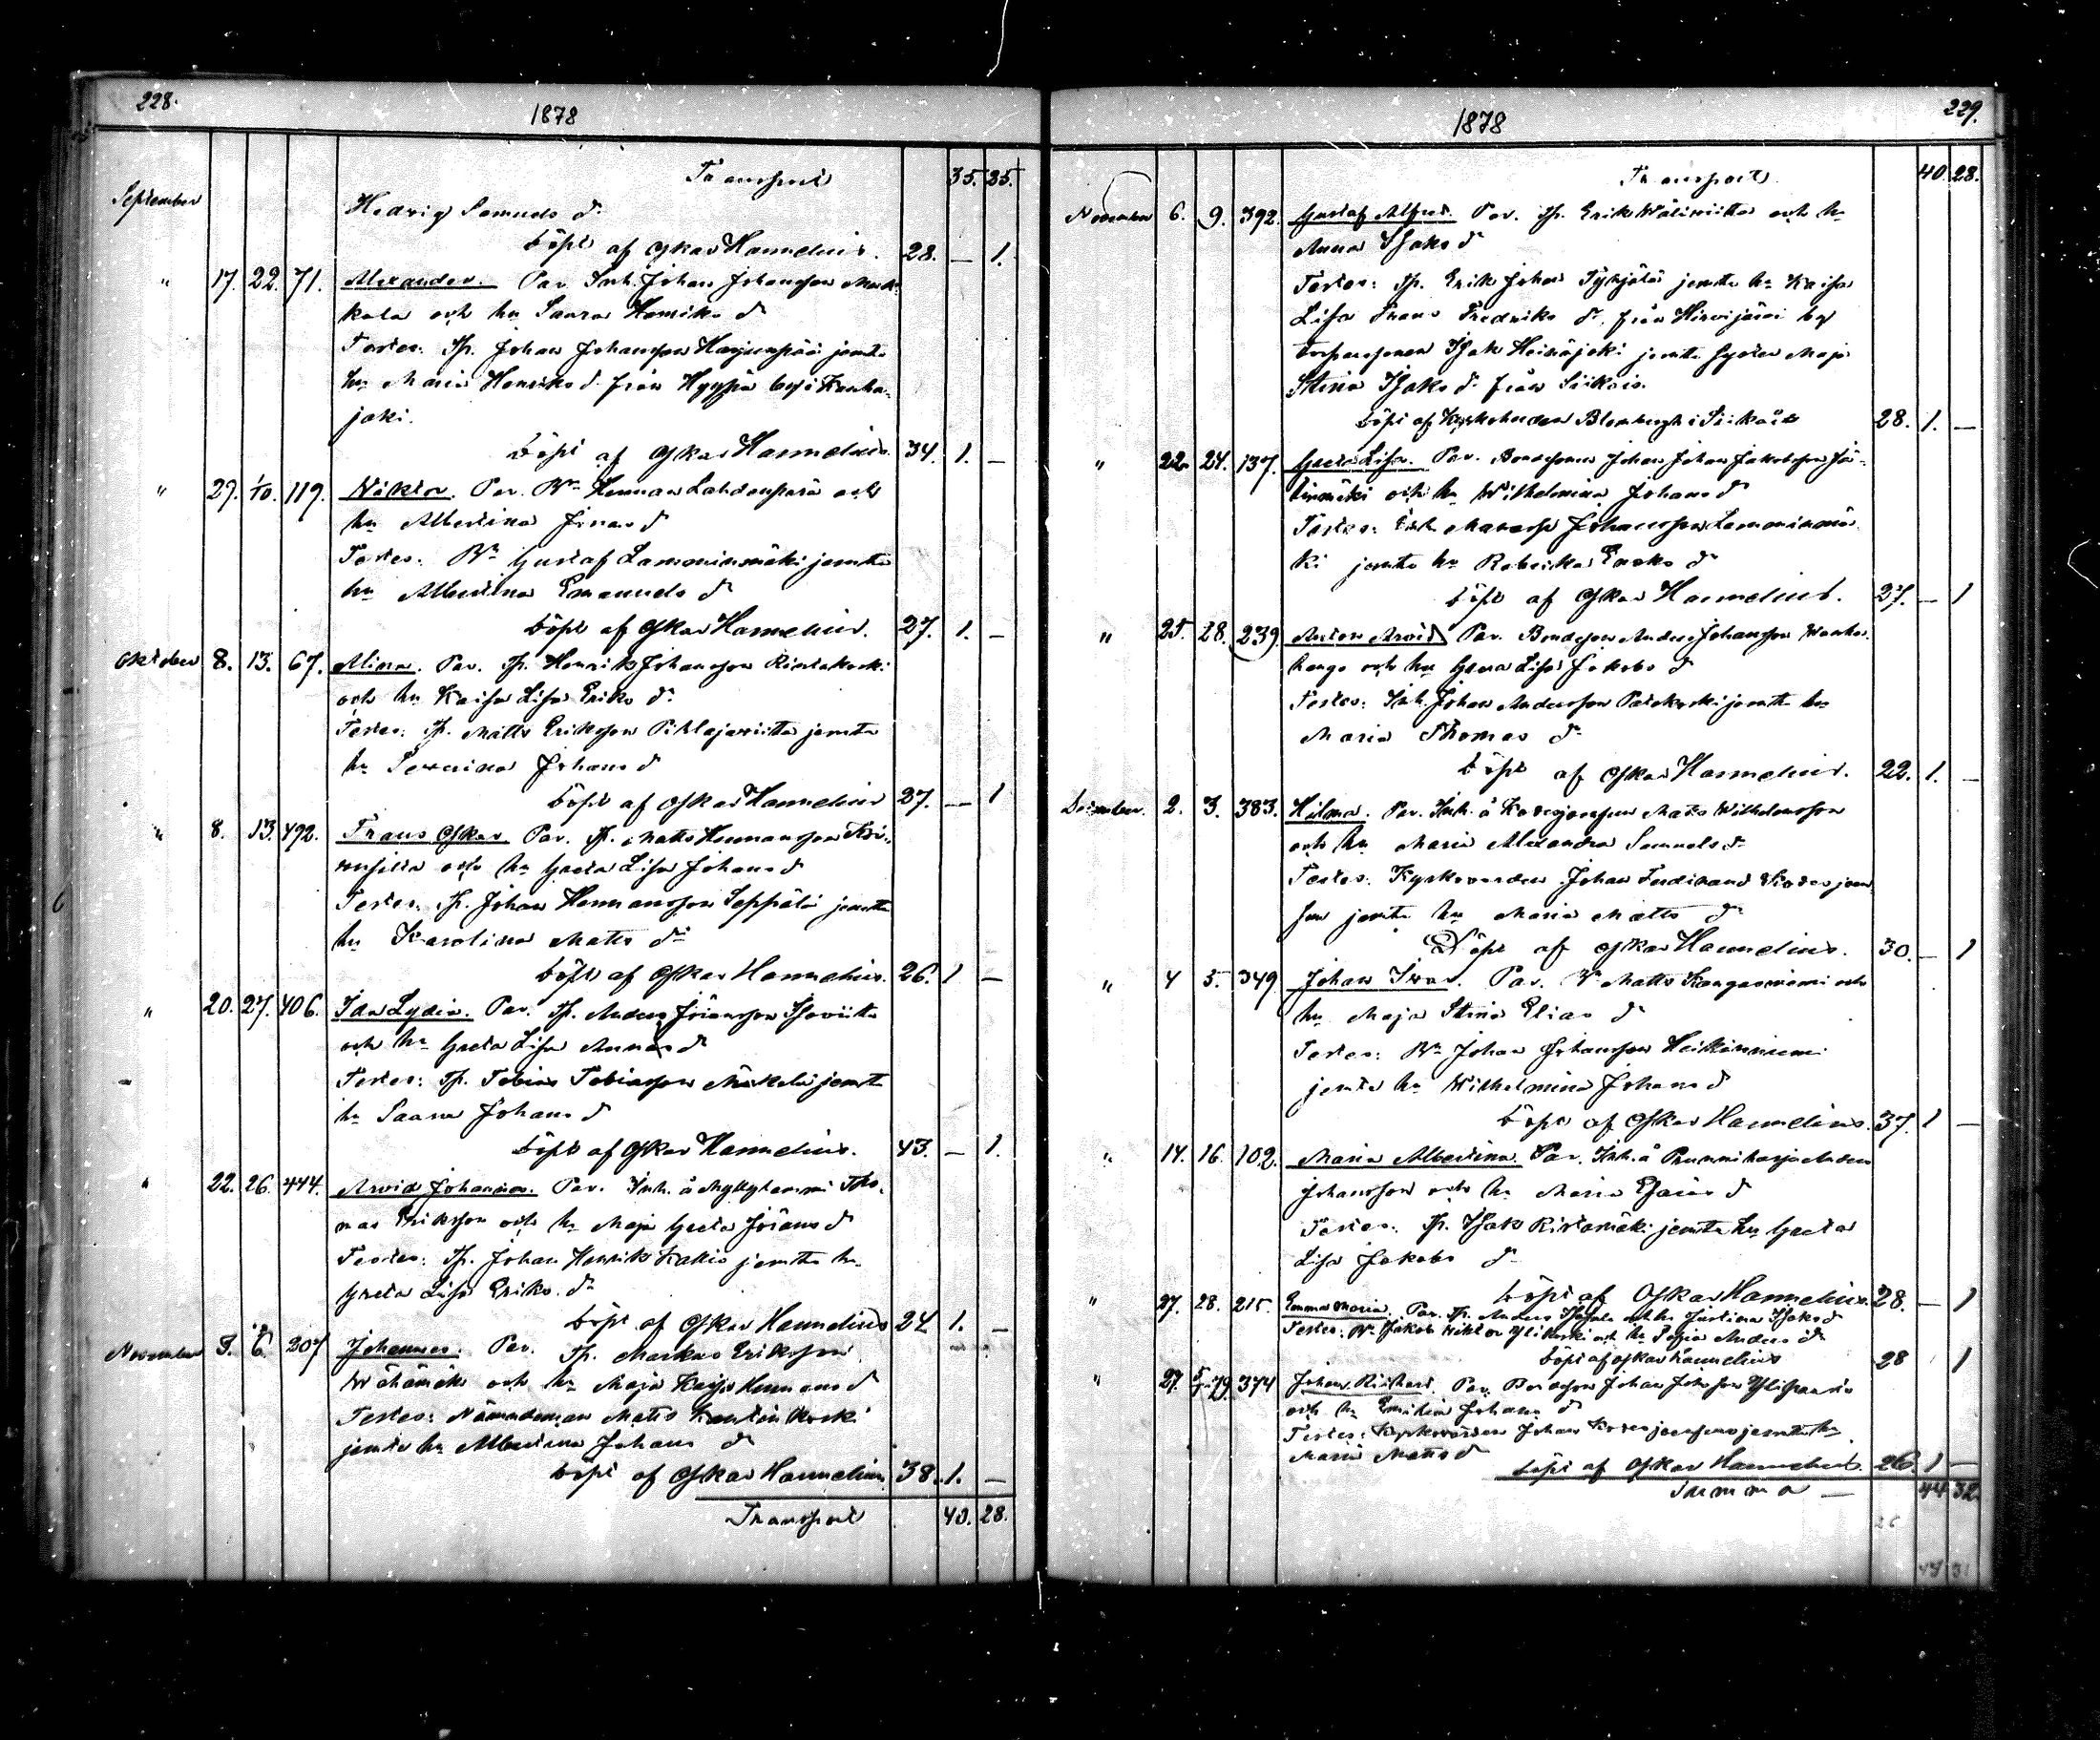 228.
1878
Transport 35. 25.
September Hedvig Samuels dr
döpt af Oskar Hannelius. 28. — 1.
" 17. 22. 71. Alexander. Par. Inh. Johan Johansson Mark-
kola och hu Saara Henriks dr
Testes: Tp. Johan Johansson Harjunpää jemte
hu Maria Henriks dr från Hyyppä by i Kauha-
joki.
döpt af Oskar Hannelius. 34. 1. —
" 29. 1/10. 119. Viktor. Par. Bn Herman Lahdenperä och
hu Albertina Jonas dr
Testes: Bn Gustaf Lamminmäki jemte
hu Albertina Emanuels dr
döpt af Oskar Hannelius. 27. 1. —
Oktober 8. 13. 67. Mina. Par. Tp. Henrik Johansson Rintakoski
och hu Kaisa Lisa Eriks dr
Testes: Tp. Matts Eriksson Pihlajaviita jemte
hu Severina Johans dr
döpt af Oskar Hannelius 27. — 1
" 8. 13. 492. Frans Oskar. Par. Tp. Matts Hermansson
och hu Greta Lisa Johans dr
Testes: Tp. Johan Hermansson Seppälä jemte
hu Karolina Matts dr
döpt af Oskar Hannelius. 26. 1 —
" 20. 27. 406. Ida Lydia. Par. Tp. Anders Jöransson Isoviita
och hu Greta Lisa Annas dr
Testes: Tp. Tobias Tobiasson Mäkelä jemte
hu Saara Johans dr
döpt af Oskar Hannelius. 43. — 1.
" 22. 26. 444. Arvid Johannes. Par. Inh. å Myllylammi Tho-
mas Eriksson och hu Maja Greta Jörans dr
Testes: Tp. Johan Henrik Kallio jemte hu
Greta Lisa Eriks dr
döpt af Oskar Hannelius 24 1. —
November 3. 6. 207 Johannes. Par. Tp. Markus Eriksson
Wähämäki och hu Maja Kaisa Hermans dr
Testes: Nämndeman Matts Kantinkoski
jemte hu Albertina Johans dr
döpt af Oskar Hannelius 38. 1. —
Transport 40. 28.
229.
1878
Transport 40 28.
November 6. 9. 392. Gustaf Alfred. Par. Tp. Erik Wäliviita och hu
Anna Isaks dr
Testes: Tp. Erik Johan Työjälä jemte hu Kaisa
Lisa Frans Fredriks dr, från Hirvijärvi by
Isak Heinäjoki jemte syster Maja
Stina Isaks dr från Siikais.
döpt af Kyrkoherden Blombergh i Siikais 28. 1. —
" 22. 24. 137. Greta Lisa. Par. Bondesonen Johan Johan Jakobsson
och hu Wilhelmina Johans dr
Testes: Inh. Manasse Johansson Lamminmä-
ki jemte hu Rebecka Enoks dr
döpt af Oskar Hannelius. 27. — 1
" 25. 28. 239. Anton Arvid Par. Bondeson Anders Johansson Wanha-
kangas och hu Greta Lisa Jakobs dr
Testes: Inh. Johan Andersson Palokoski jemte hu
Maria Thomas dr
döpt af Oskar Hannelius. 22. 1. —
December. 2. 3. 383. Hilma. Par. Inh. å Kodesjoensuu Matts Wilhelmsson
och hu Maria Alexandra Samuels dr
Testes: Kyrkovärden Johan Ferdinand Kodesjoen-
suu jemte hu Maria Matts dr
Döpt af Oskar Hannelius. 30. — 1
" 4 5. 349 Johan Ivar. Par. Matts Kangasniemi och
hu Maja Stina Elias dr
Testes: Bn Johan Johansson Heikinniemi
jemte hu Wilhelmina Johans dr
döpt af Oskar Hannelius. 37. 1 —
" 14. 16. 102. Maria Albertina. Par. Inh. å Prunniharju Anders
Johansson och hu Maria Esaias dr
Testes: Tp. Isak Ristamäki jemte hu Greta
Lisa Jakobs dr
döpt af Oskar Hannelius. 28. — 1
" 27. 28. 215. Emma Maria. Par. Tp. Anders och hu Justina Isaks dr
Testes: Bn Jakob Viktor Ylikoski och hu Sofia Anders dr
döpt af Oskar Hannelius 28 1
" 27. 374 Johan Rikhard. Par. Bondeson Johan Johansson
och hu Emilia Johans dr
Testes: Kyrkovärden Johan Kodesjoensuu jemte hu
Maria Matts dr
döpt af Oskar Hannelius. 26. 1 —
Summa — 44 32.